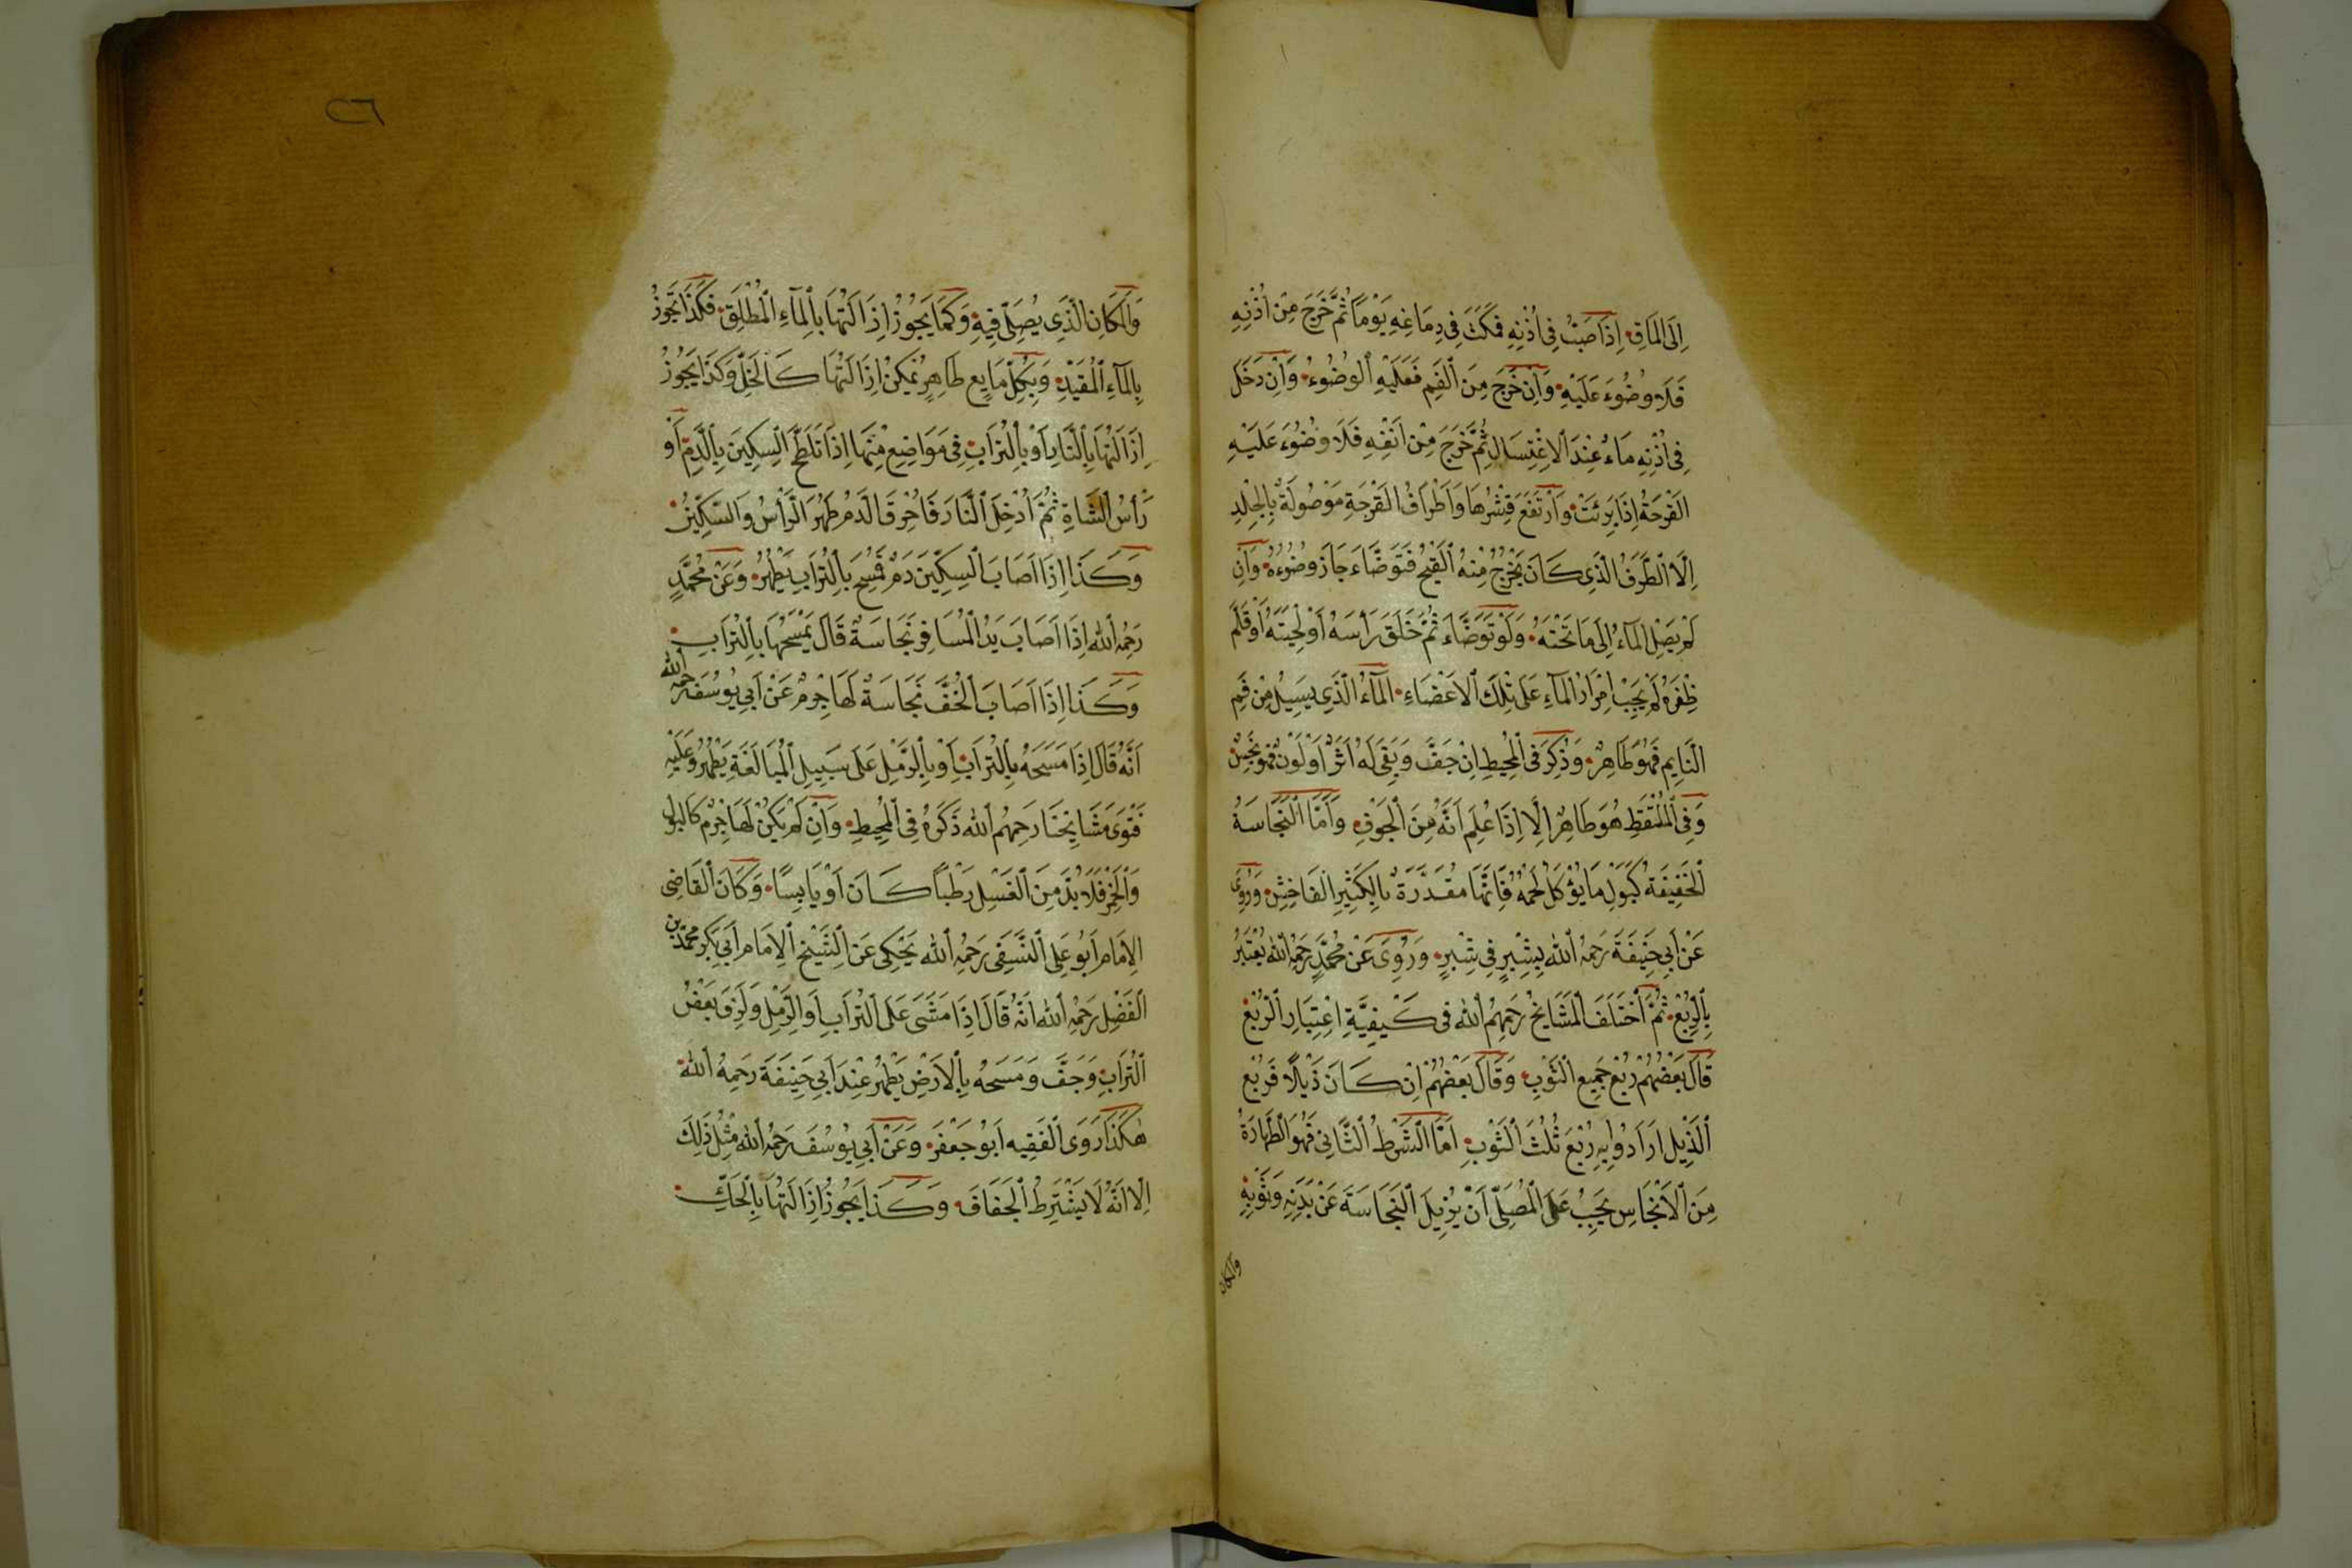 اِلَى الْمَاقِ اِذَا صَبَّ فِى اُذُنِهِ فَمَكَثَ فِى دِمَاغِهِ يَوْمًا ثُمَّ خَرَجَ مِنْ اُذُنِهِ
فَلَا وُضُوءَ عَلَيْهِ وَاِنْ خَرَجَ مِنَ الْفَمِ فَعَلَيْهِ الْوُضُوءُ وَاِنْ دَخَلَ
فِى اُذُنِهِ مَاءٌ عِنْدَ الْاِغْتِسَالِ ثُمَّ خَرَجَ مِنْ اَنْفِهِ فَلَا وُضُوءَ عَلَيْهِ
الْقَرْحَةُ اِذَا بَرِئَتْ وَارْتَفَعَ قِشْرُهَا وَاَطْرَافُ الْقَرْحَةِ مَوْصُولَةٌ بِالْجِلْدِ
اِلَّا الطَّرَفُ الَّذِى كَانَ يَخْرُجُ مِنْهُ الْقَيْحُ فَتَوَضَّاءَ جَازَ وُضُوءُهُ وَاِنْ
لَمْ يَصِلِ الْمَآءُ اِلَى مَا تَحْتَهُ وَلَوْ تَوَضَّاءَ ثُمَّ حَلَقَ رَأْسَهُ اَوْ لِحْيَتَهُ اَوْ قَلَّمَ
ظُفْرَهُ لَمْ يَجِبْ اِمْرَارُ الْمَآءِ عَلَى تِلْكَ الْاَعْضَاءِ الْمَآءُ الَّذِى يَسِيلُ مِنْ فَمِ
النَّايِمِ فَهُوَ طَاهِرٌ وَذُكِرَ فِى الْمُحِيطِ اِنْ جَفَّ وَبَقِىَ لَهُ اَثَرٌ اَوْ لَوْنٌ فَهُوَ نَجِسٌ
وَفِى الْمُلْتَقَطِ هُوَ طَاهِرٌ اِلَّا اِذَا عُلِمَ اَنَّهُ مِنَ الْجَوْفِ وَاَمَّا النَّجَاسَةُ
الْخَفِيفَةُ كَبَوْلِ مَا يُؤْكَلُ لَحْمُهُ فَاِنَّهَا مُقَدَّرَةٌ بِالْكَثِيرِ الْفَاحِشِ وَرُوِىَ
عَنْ اَبِى حَنِيفَةَ رَحِمَهُ اللهُ بِشِبْرٍ فِى شِبْرٍ وَرُوِىَ عَنْ مُحَمَّدٍ رَحِمَهُ اللهُ يُعْتَبَرُ
بِالرُّبْعِ ثُمَّ اخْتَلَفَ الْمَشَايِخُ رَحِمَهُمُ اللهُ فِى كَيْفِيَّةِ اعْتِبَارِ الرُّبْعِ
قَالَ بَعْضُهُمْ رُبْعُ جَمِيعِ الثَّوْبِ وَقَالَ بَعْضُهُمْ اِنْ كَانَ ذَيْلًا فَرُبْعُ
الذَّيْلِ اَرَادُوا بِهِ رُبْعَ ثُلُثِ الثَّوْبِ اَمَّا الشَّرْطُ الثَّانِى فَهُوَ الطَّهَارَةُ
مِنَ الْاَنْجَاسِ يَجِبُ عَلَى الْمُصَلِّى اَنْ يُزِيلَ النَّجَاسَةَ عَنْ بَدَنِهِ وَثَوْبِهِ
والمكان
٢٦
وَالْمَكَانِ الَّذِى يُصَلِّى فِيهِ وَكَمَا يَجُوزُ اِزَالَتُهَا بِالْمَآءِ الْمُطْلَقِ فَكَذَا تَجُوزُ
بِالْمَآءِ الْمُقَيَّدِ وَبِكُلِّ مَايِعٍ طَاهِرٍ يُمْكِنُ اِزَالَتُهَا كَالْخَلِّ وَكَذَا يَجُوزُ
اِزَالَتُهَا بِالنَّارِ اَوْ بِالتُّرَابِ فِى مَوَاضِعَ مِنْهَا اِذَا تَلَطَّخَ السِّكِّينُ بِالدَّمِ اَوْ
رَأْسُ الشَّاةِ ثُمَّ اُدْخِلَ النَّارَ فَاحْرَقَ الدَّمُ طَهُرَ الرَّأْسُ وَالسِّكِّينُ
وَكَذَا اِذَا اَصَابَ السِّكِّينَ دَمٌ فَمُسِحَ بِالتُّرَابِ يَطْهُرُ وَعَنْ مُحَمَّدٍ
رَحِمَهُ اللهُ اِذَا اَصَابَ يَدَ الْمُسَافِرِ نَجَاسَةٌ قَالَ يَمْسَحُهَا بِالتُّرَابِ
وَكَذَا اِذَا اَصَابَ الْخُفَّ نَجَاسَةٌ لَهَا جِرْمٌ عَنْ اَبِى يُوسُفَ رَحِمَهُ اللهُ
اَنَّهُ قَالَ اِذَا مَسَحَهُ بِالتُّرَابِ اَوْ بِالرَّمْلِ عَلَى سَبِيلِ الْمُبَالَغَةِ يَطْهُرُ وَعَلَيْهِ
فَتْوَى مَشَايِخِنَا رَحِمَهُمُ اللهُ ذَكَرَهُ فِى الْمُحِيطِ وَاِنْ لَمْ يَكُنْ لَهَا جِرْمٌ كَالْبَوْلِ
وَالْخَمْرِ فَلَا بُدَّ مِنَ الْغَسْلِ رَطْبًا كَانَ اَوْ يَابِسًا وَكَانَ الْقَاضِى
الْاِمَامُ اَبُو عَلِى النَّسَفِى رَحِمَهُ اللهُ يَحْكِى عَنِ الشَّيْخِ الْاِمَامِ اَبِى بَكْرٍ مُحَمَّدِ بْنِ
الْفَضْلِ رَحِمَهُ اللهُ اَنَّهُ قَالَ اِذَا مَشَى عَلَى التُّرَابِ اَوِ الرَّمْلِ وَلَزِقَ بَعْضُ
التُّرَابِ وَجَفَّ وَمَسَحَهُ بِالْاَرْضِ يَطْهُرُ عِنْدَ اَبِى حَنِيفَةَ رَحِمَهُ اللهُ
هٰكَذَا رَوَى الْفَقِيهُ اَبُو جَعْفَرٍ وَعَنْ اَبِى يُوسُفَ رَحِمَهُ اللهُ مِثْلُ ذَلِكَ
اِلَّا اَنَّهُ لَا يَشْتَرِطُ الْجَفَافَ وَكَذَا يَجُوزُ اِزَالَتُهَا بِالْحَكِّ